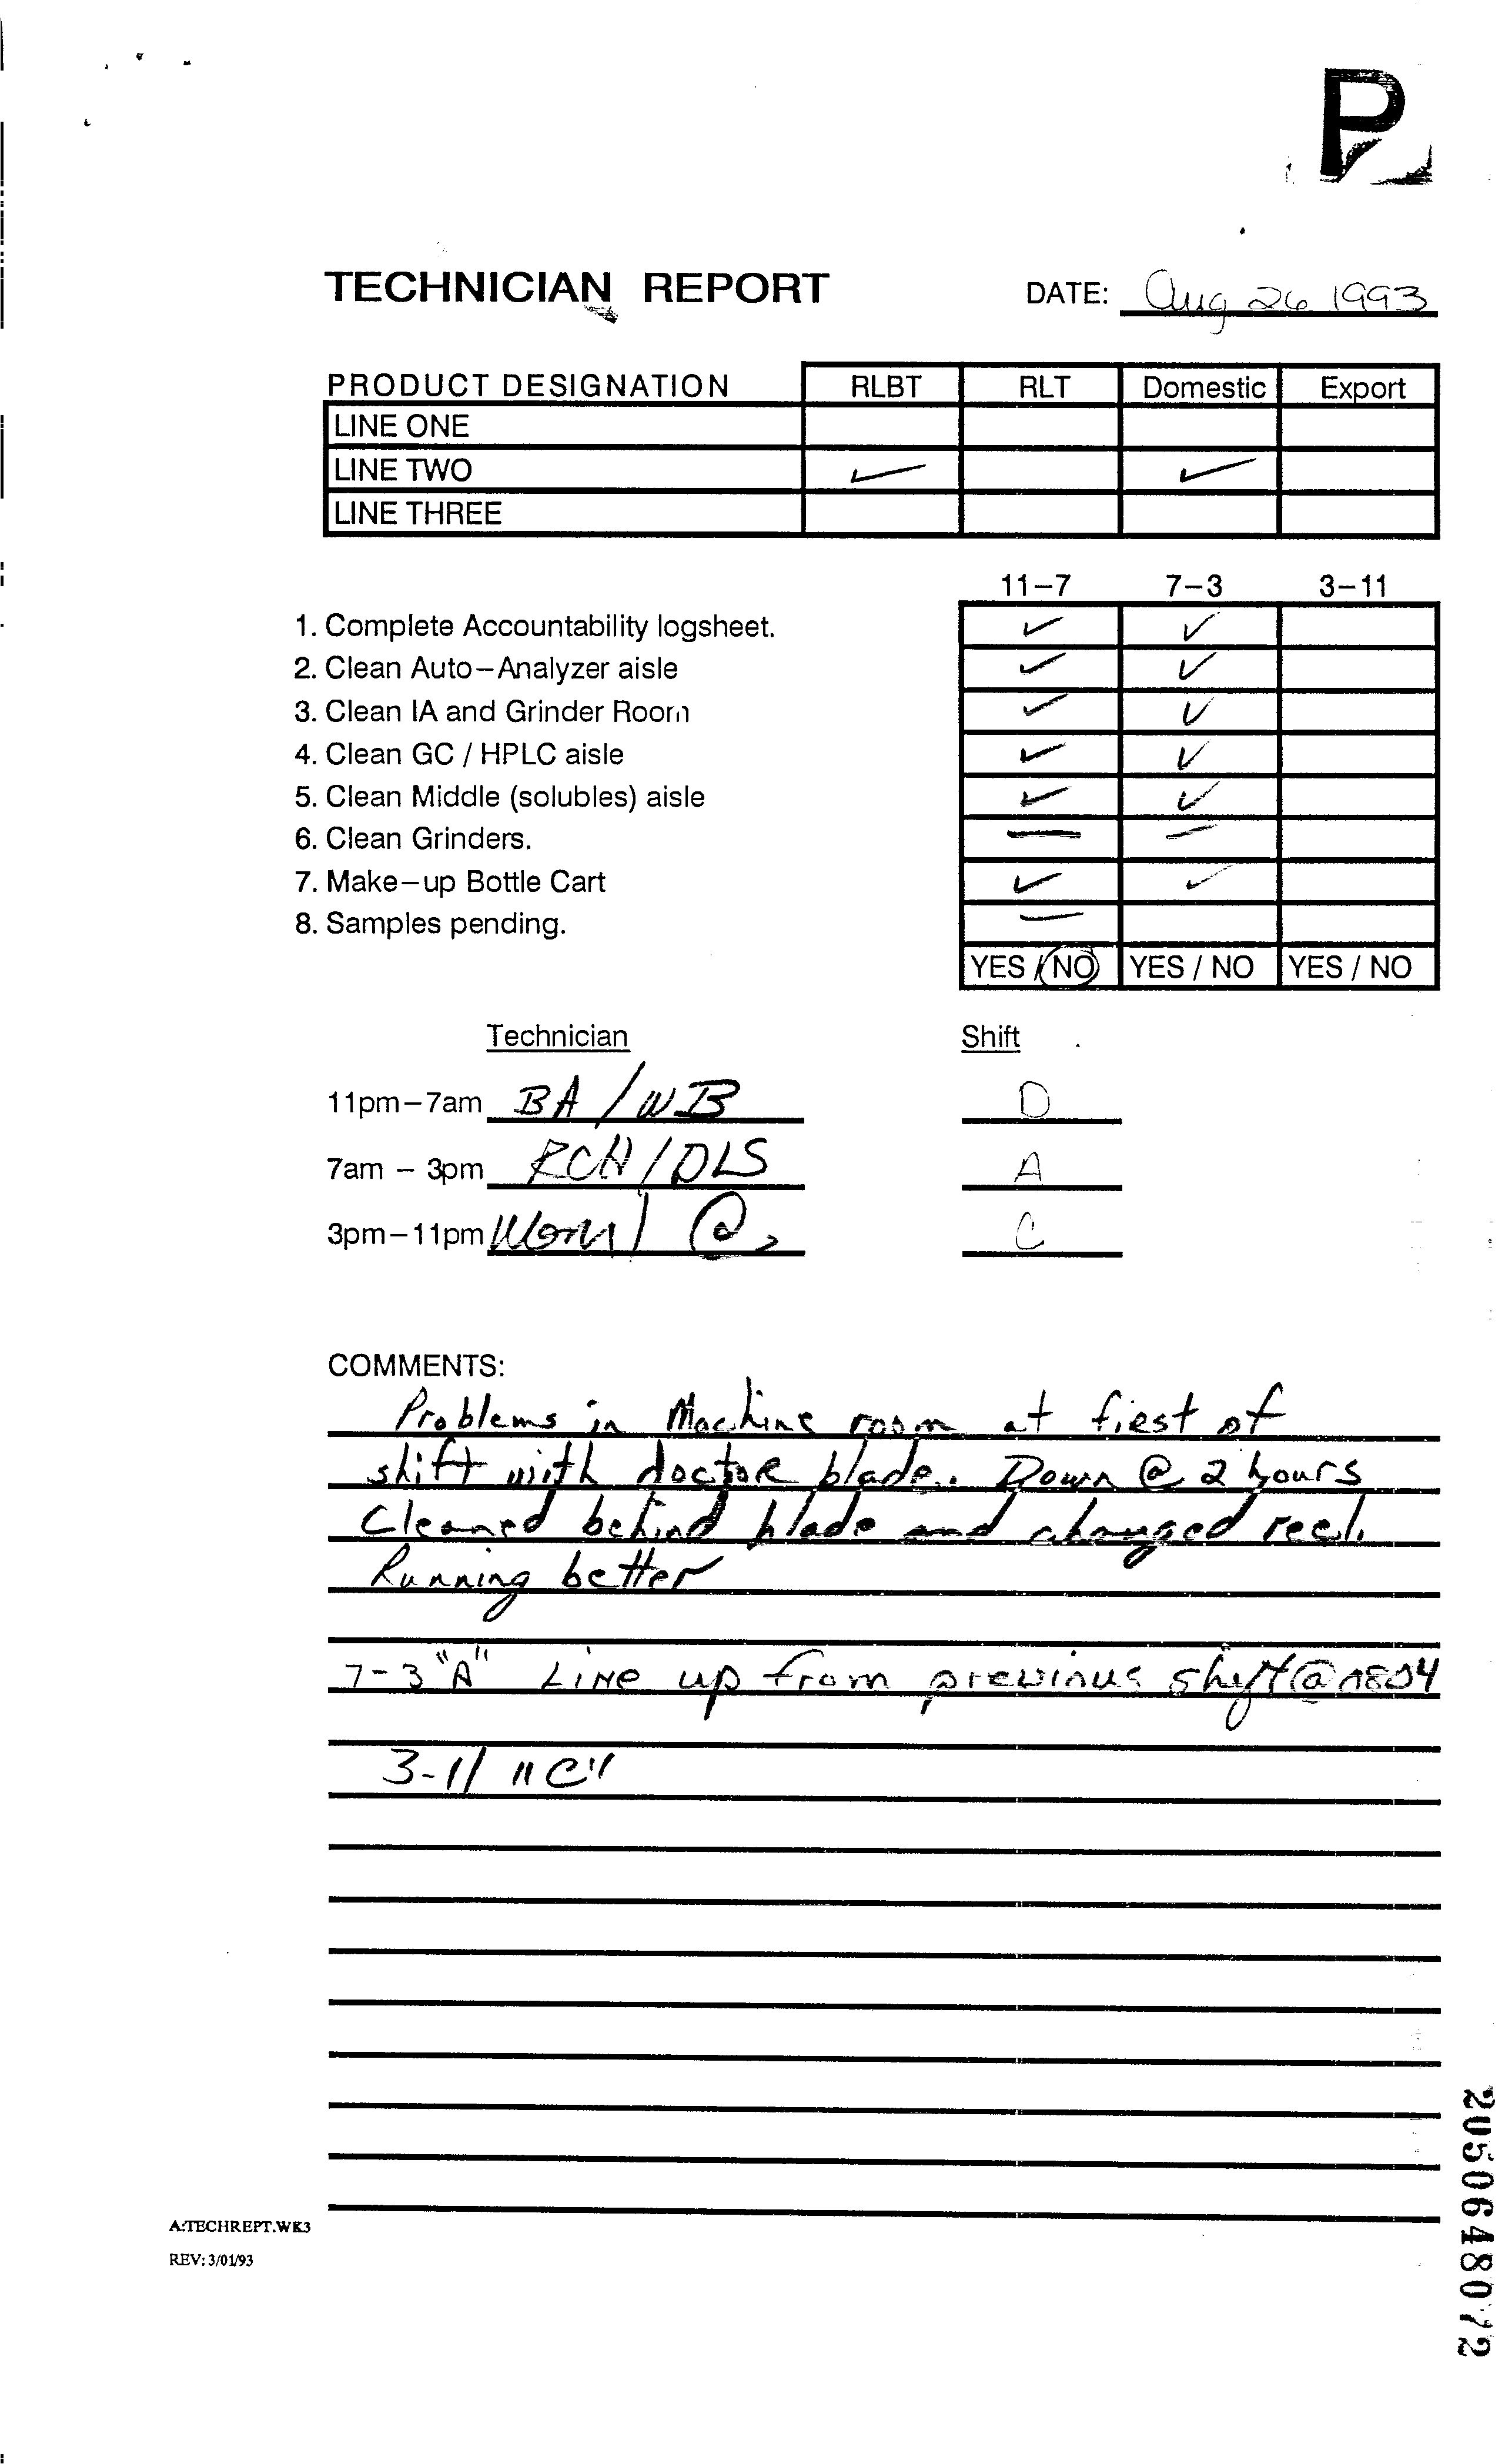 P
TECHNICIAN REPORT DATE: Aug 26 1993
PRODUCT DESIGNATION RLBT RLT Domestic Export
LINE ONE
LINE TWO ✓ ✓
LINE THREE
11-7 7-3 3-11
1. Complete Accountability logsheet. ✓ ✓
2. Clean Auto-Analyzer aisle ✓ ✓
3. Clean IA and Grinder Room ✓ ✓
4. Clean GC / HPLC aisle ✓ ✓
5. Clean Middle (solubles) aisle ✓ ✓
6. Clean Grinders. — —
7. Make-up Bottle Cart ✓ ✓
8. Samples pending. —
YES / NO YES / NO YES / NO
Technician Shift
11pm-7am BA / WB D
7am - 3pm RCH / DLS A
3pm-11pm C
COMMENTS:
Problems in Machine room at first of
shift with doctor blade. Down @ 2 hours
Cleaned behind blade and changed reel.
Running better
7-3 "A" Line up from previous shift @ 0804
3-11 "C"
A:TECHREPT.WK3
REV: 3/01/93
2050648072